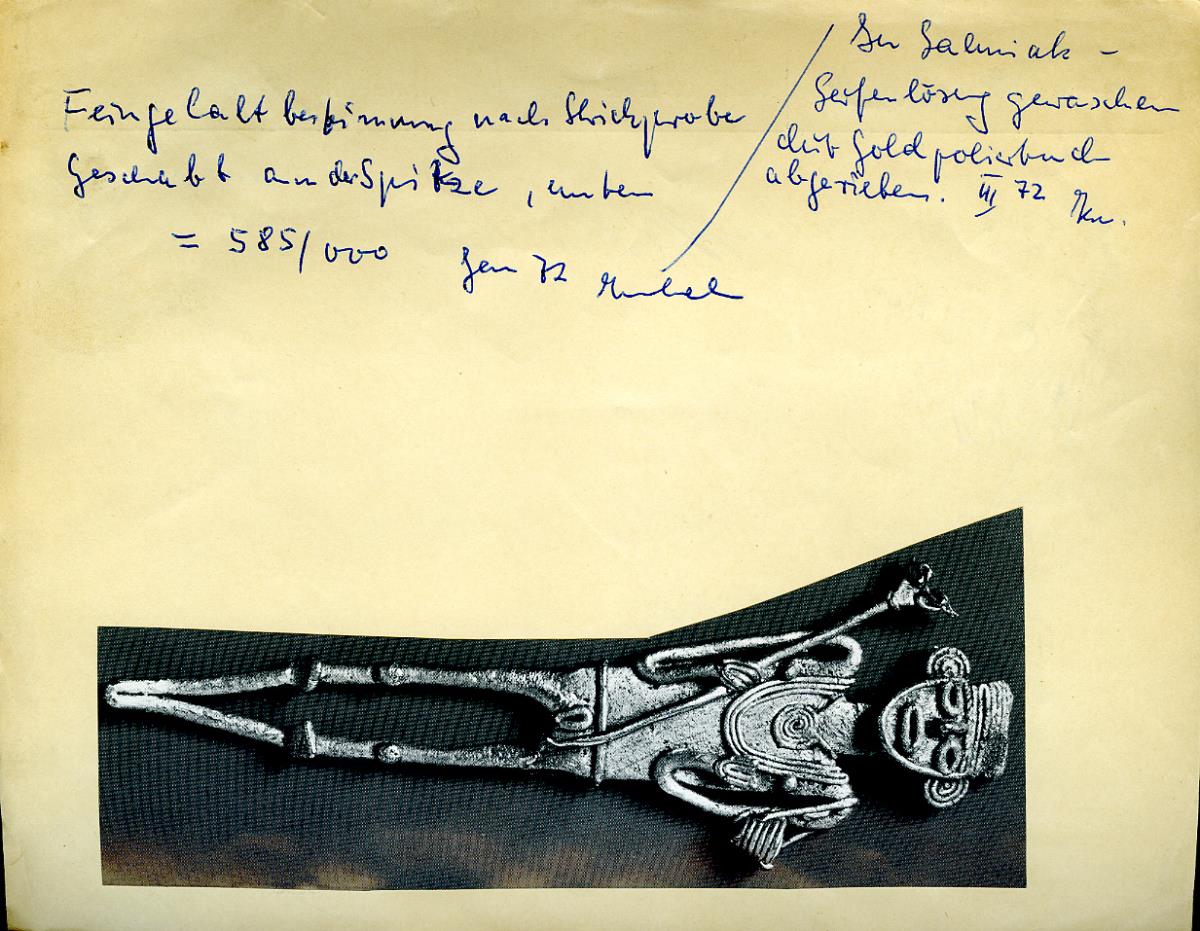 Feingehaltbestimmung nach Strichprobe
Geschabt an der Spitze, unten
= 585/000 Jan 72
In Salmiak-
Seifenlösung gewaschen
Mit Goldpoliertuch
abgerieben. III 72